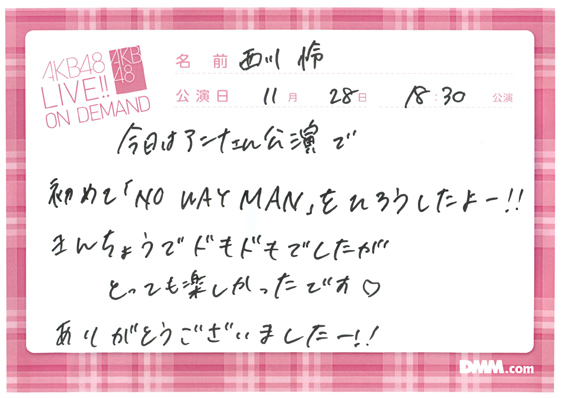 AKB48
LIVE!!
ON DEMAND
AKB
48
名前 西川 怜
公演日 11月 28日 18:30 公演
今日はアンコール公演で
初めて「NO WAY MAN」をひろうしたよー!!
きんちょうでドキドキでしたが
とっても楽しかったです♡
ありがとうございましたー!!
DMM.com